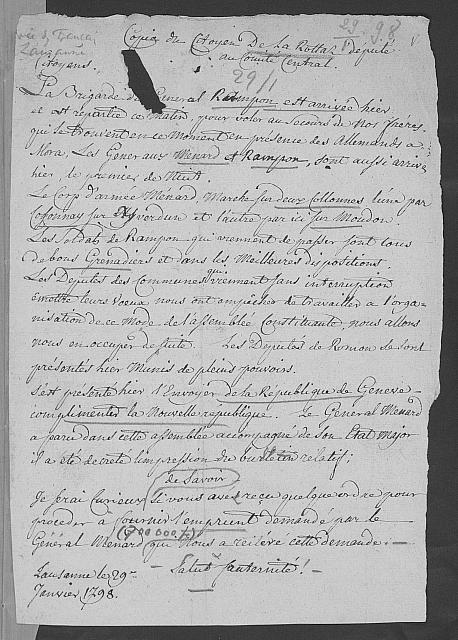 29/1 98
Copie du Citoyen De La Rottaz député
au Comité Central.
Citoyens. 29/1
La Brigade du General Rampon est arrivée hier
et est repartie ce matin, pour voler au Secours de Nos freres,
qui se trouvent en ce moment en présence des Allemands a
Mora, Les Generaux Menard et Rampon, sont aussi arrivé
hier, le premier de Nuit.
Le Corp d'armée Ménard, Marche sur deux Collonnes l'une par
Cossonnay sur Yverdun et l'autre par ici sur Moudon
Les Soldats de Rampon qui viennent de passer sont tous
de bons Grenadiers et dans les Meilleures dispositions.
Les Deputés des Communes qui viennent sans interruption
Emettre leurs Voeux nous ont empecher de travailler a l'orga-
nisation de ce Mode de l'assemblée Constituante, nous allons
nous en occuper de suite. Les Deputés de Romon se sont
présentés hier Munis de pleins pouvoirs.
S'est présenté hier l'Envoyer de la République de Geneve
complimenter la Nouvelle république. Le General Menard
a paru dans cette assemblée accompagné de son Etat Major
il a été decreté l'impression du bulletin relatif;
de Savoir
Je serai Curieux si vous avez reçu quelque ordre pour
proceder a fournir l'emprunt demandé par le
Général Menard qui Nous a reiteré cette demande.
Salut fraternité!
Lausanne le 29e
Janvier 1798.